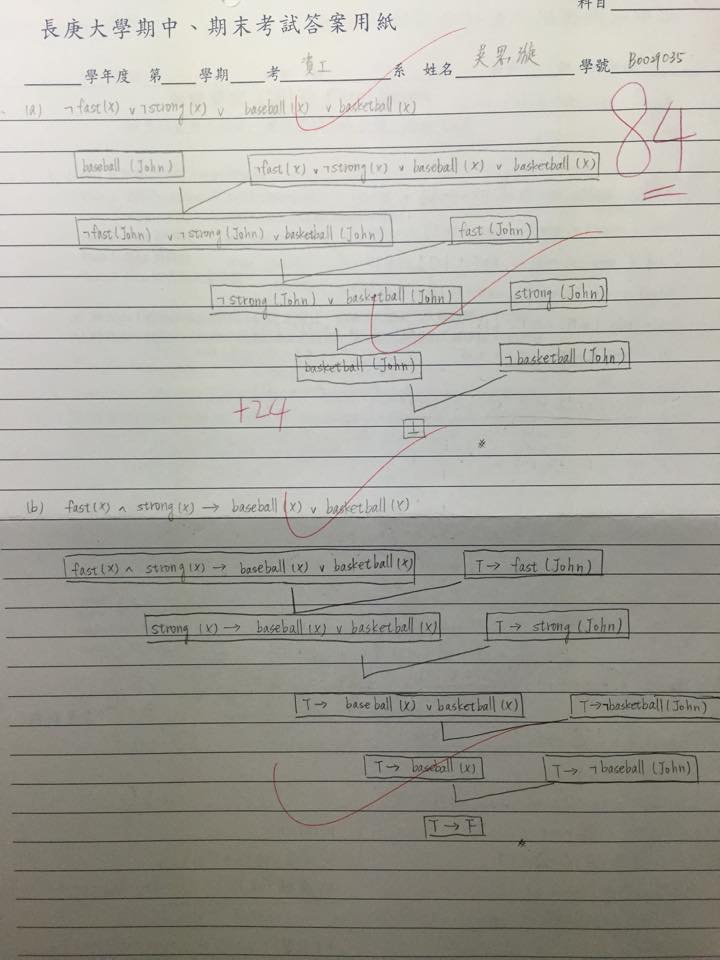 科目
長庚大學期中、期末考試答案用紙
學年度 第 學期 考 資工 系 姓名 吳 學號 B0029035
(a) ¬fast(x) ∨ ¬strong(x) ∨ baseball(x) ∨ basketball(x)
84
baseball (John) ¬fast(x) ∨ ¬strong(x) ∨ baseball(x) ∨ basketball(x)
¬fast(John) ∨ ¬strong(John) ∨ basketball(John) fast(John)
¬strong(John) ∨ basketball(John) strong(John)
basketball(John) ¬basketball(John)
+24
⊥
*
(b) fast(x) ∧ strong(x) → baseball(x) ∨ basketball(x)
fast(x) ∧ strong(x) → baseball(x) ∨ basketball(x) T → fast(John)
strong(x) → baseball(x) ∨ basketball(x) T → strong(John)
T → baseball(x) ∨ basketball(x) T → ¬basketball(John)
T → baseball(x) T → ¬baseball(John)
T → F
*